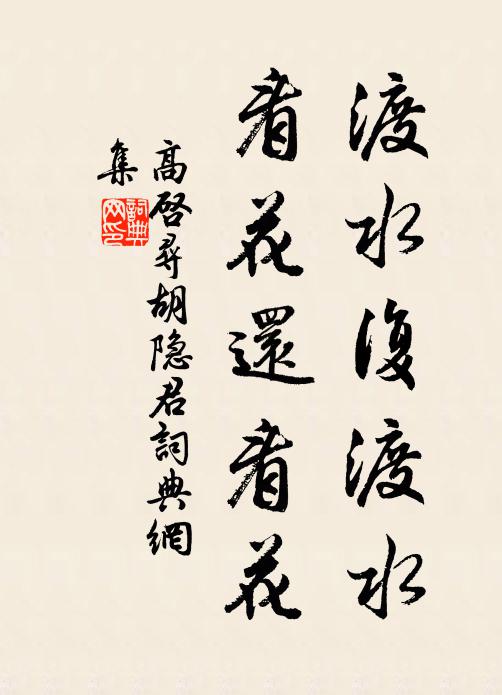 渡水復渡水
看花還看花
高啓尋胡隐君詞典網
集
詞典網印